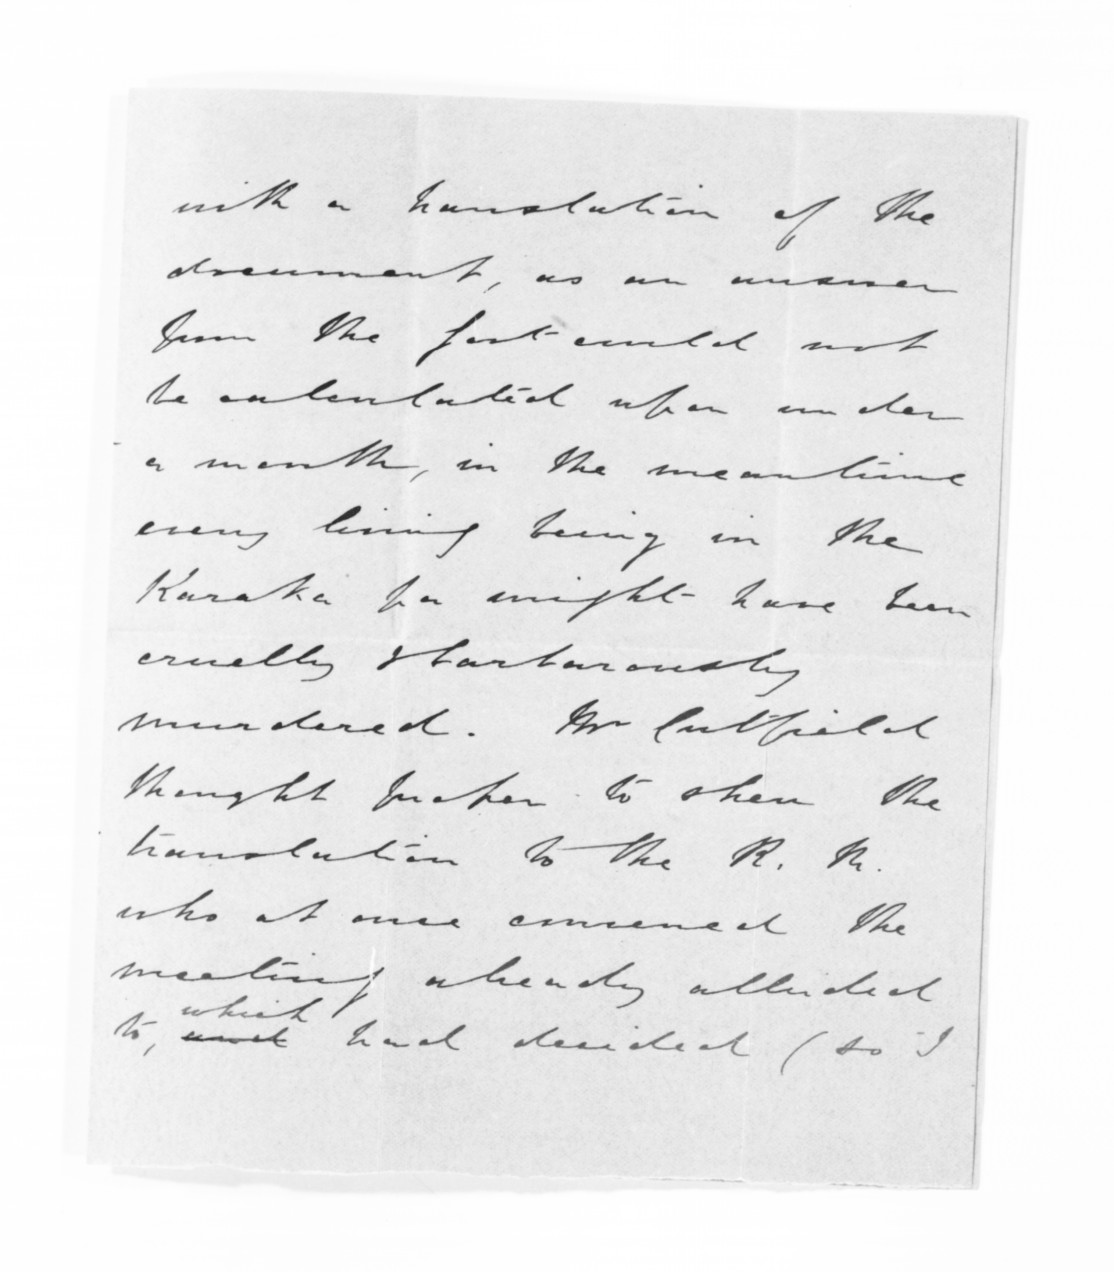 with a translation of the
document, as an answer
from the Govt could not
be calculated upon under
a month, in the meantime
every living being in the
Karaka pa might have been
cruelly & barbarously
murdered. Mr Cutfield
thought proper to shew the
translation to the R. M.
who at once convened the
meeting already alluded
which
to, and had decided (so I